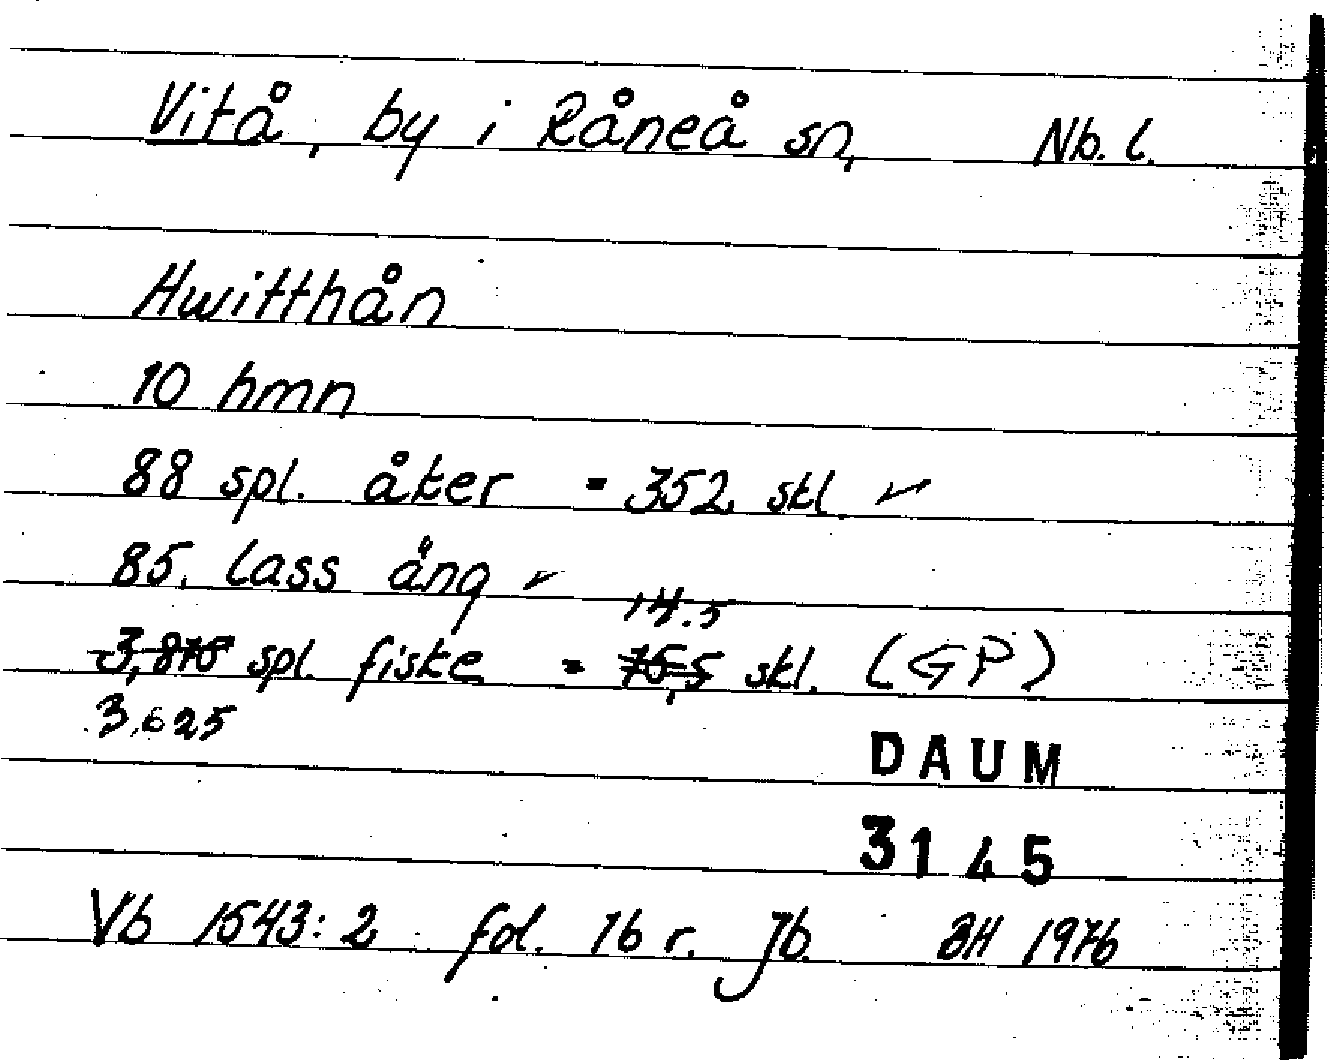 Vitå, by i Råneå sn, Nb. l.
Hwitthån
10 hmn
88 spl. åker = 352 skl ✓
85. lass äng ✓
14.5
3,875 spl. fiske = 15,5 skl. (GP)
3,625
DAUM
3145
Vb 1543:2 fol. 16 r. Jb. BH 1976